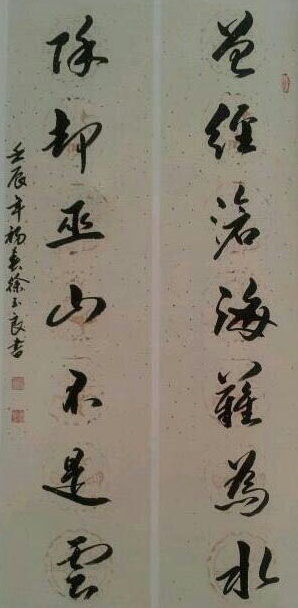 曾經滄海難為水
除却巫山不是雲
壬辰年初春徐玉良書